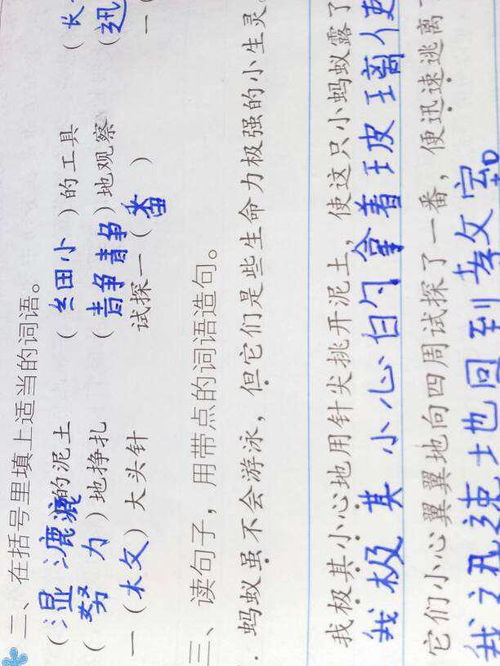 二、在括号里填上适当的词语。
(湿漉漉)的泥土 (细小)的工具 (长
(努力)地挣扎 (静静)地观察 (迅
一(枚)大头针 试探一(番) 一(
三、读句子，用带点的词语造句。
. 蚂蚁虽不会游泳，但它们是些生命力极强的小生灵。
我极其小心地用针尖挑开泥土，使这只小蚂蚁露了
我极其小心白勺拿着玻璃
它们小心翼翼地向四周试探了一番，便迅速逃离
我迅速地回到教室。